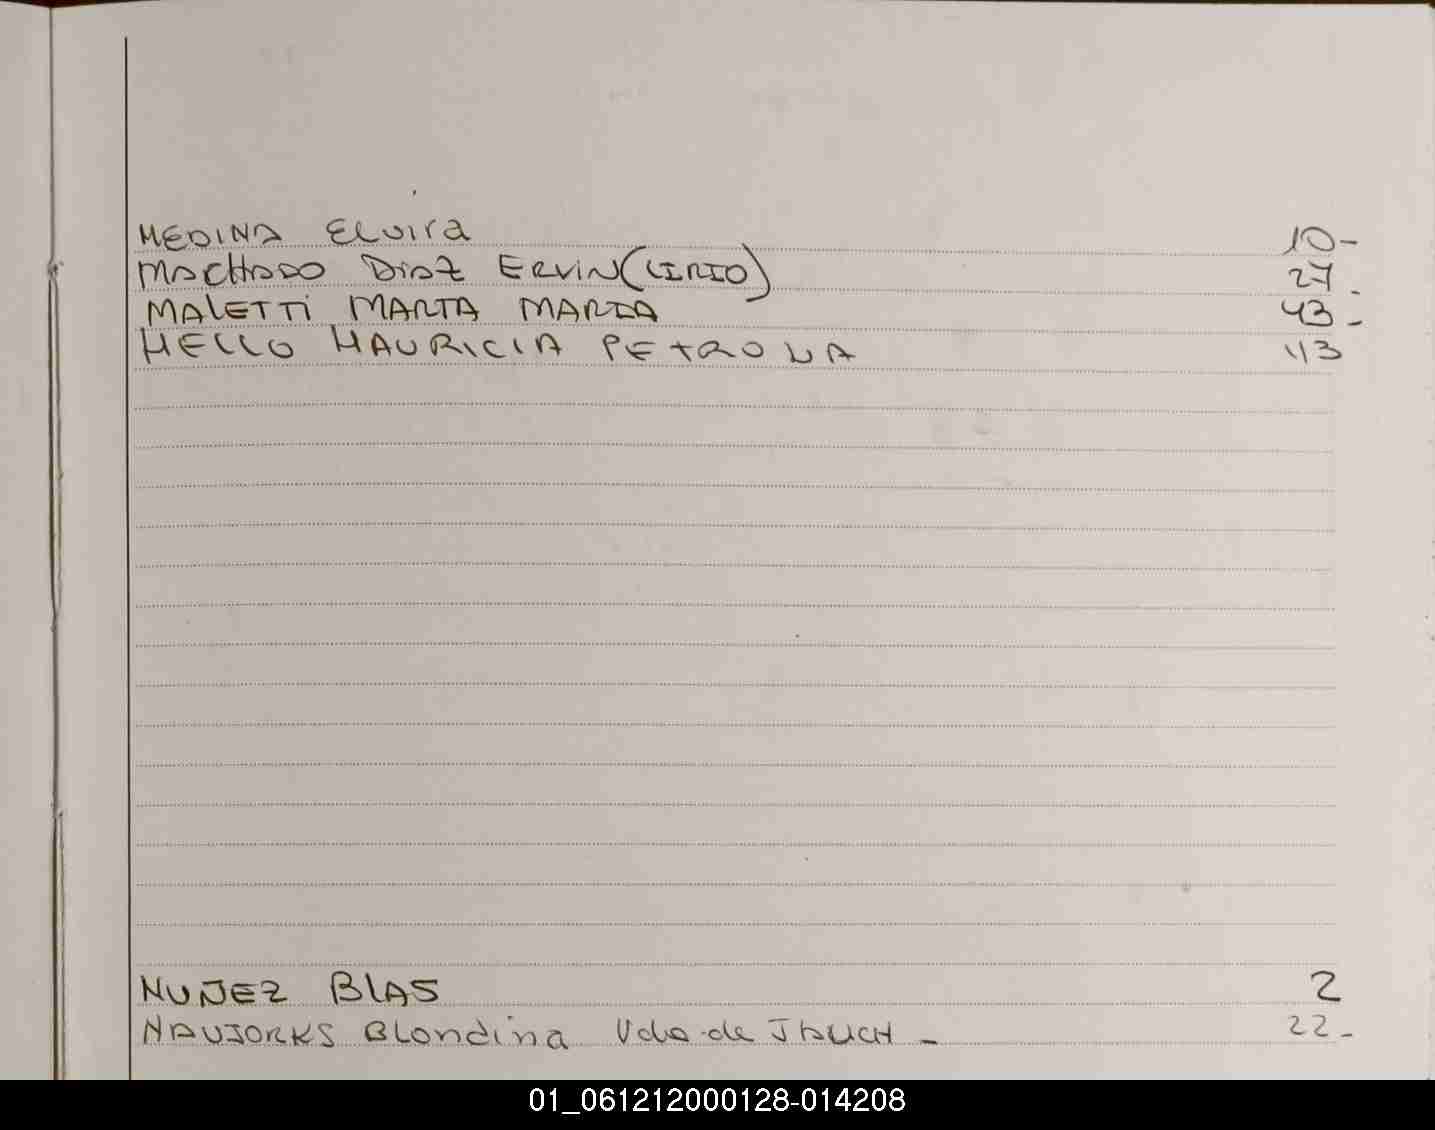 MEDINA Elvira 10-
MACHADO DIAZ ERVIN (LIRIO) 27-
MALETTI MARTA MARIA 43-
MELLO MAURICIA PETRONA 113
NUÑEZ BLAS 2
NAUJORKS Blondina Vda de JAUCH - 22-
01_061212000128-014208